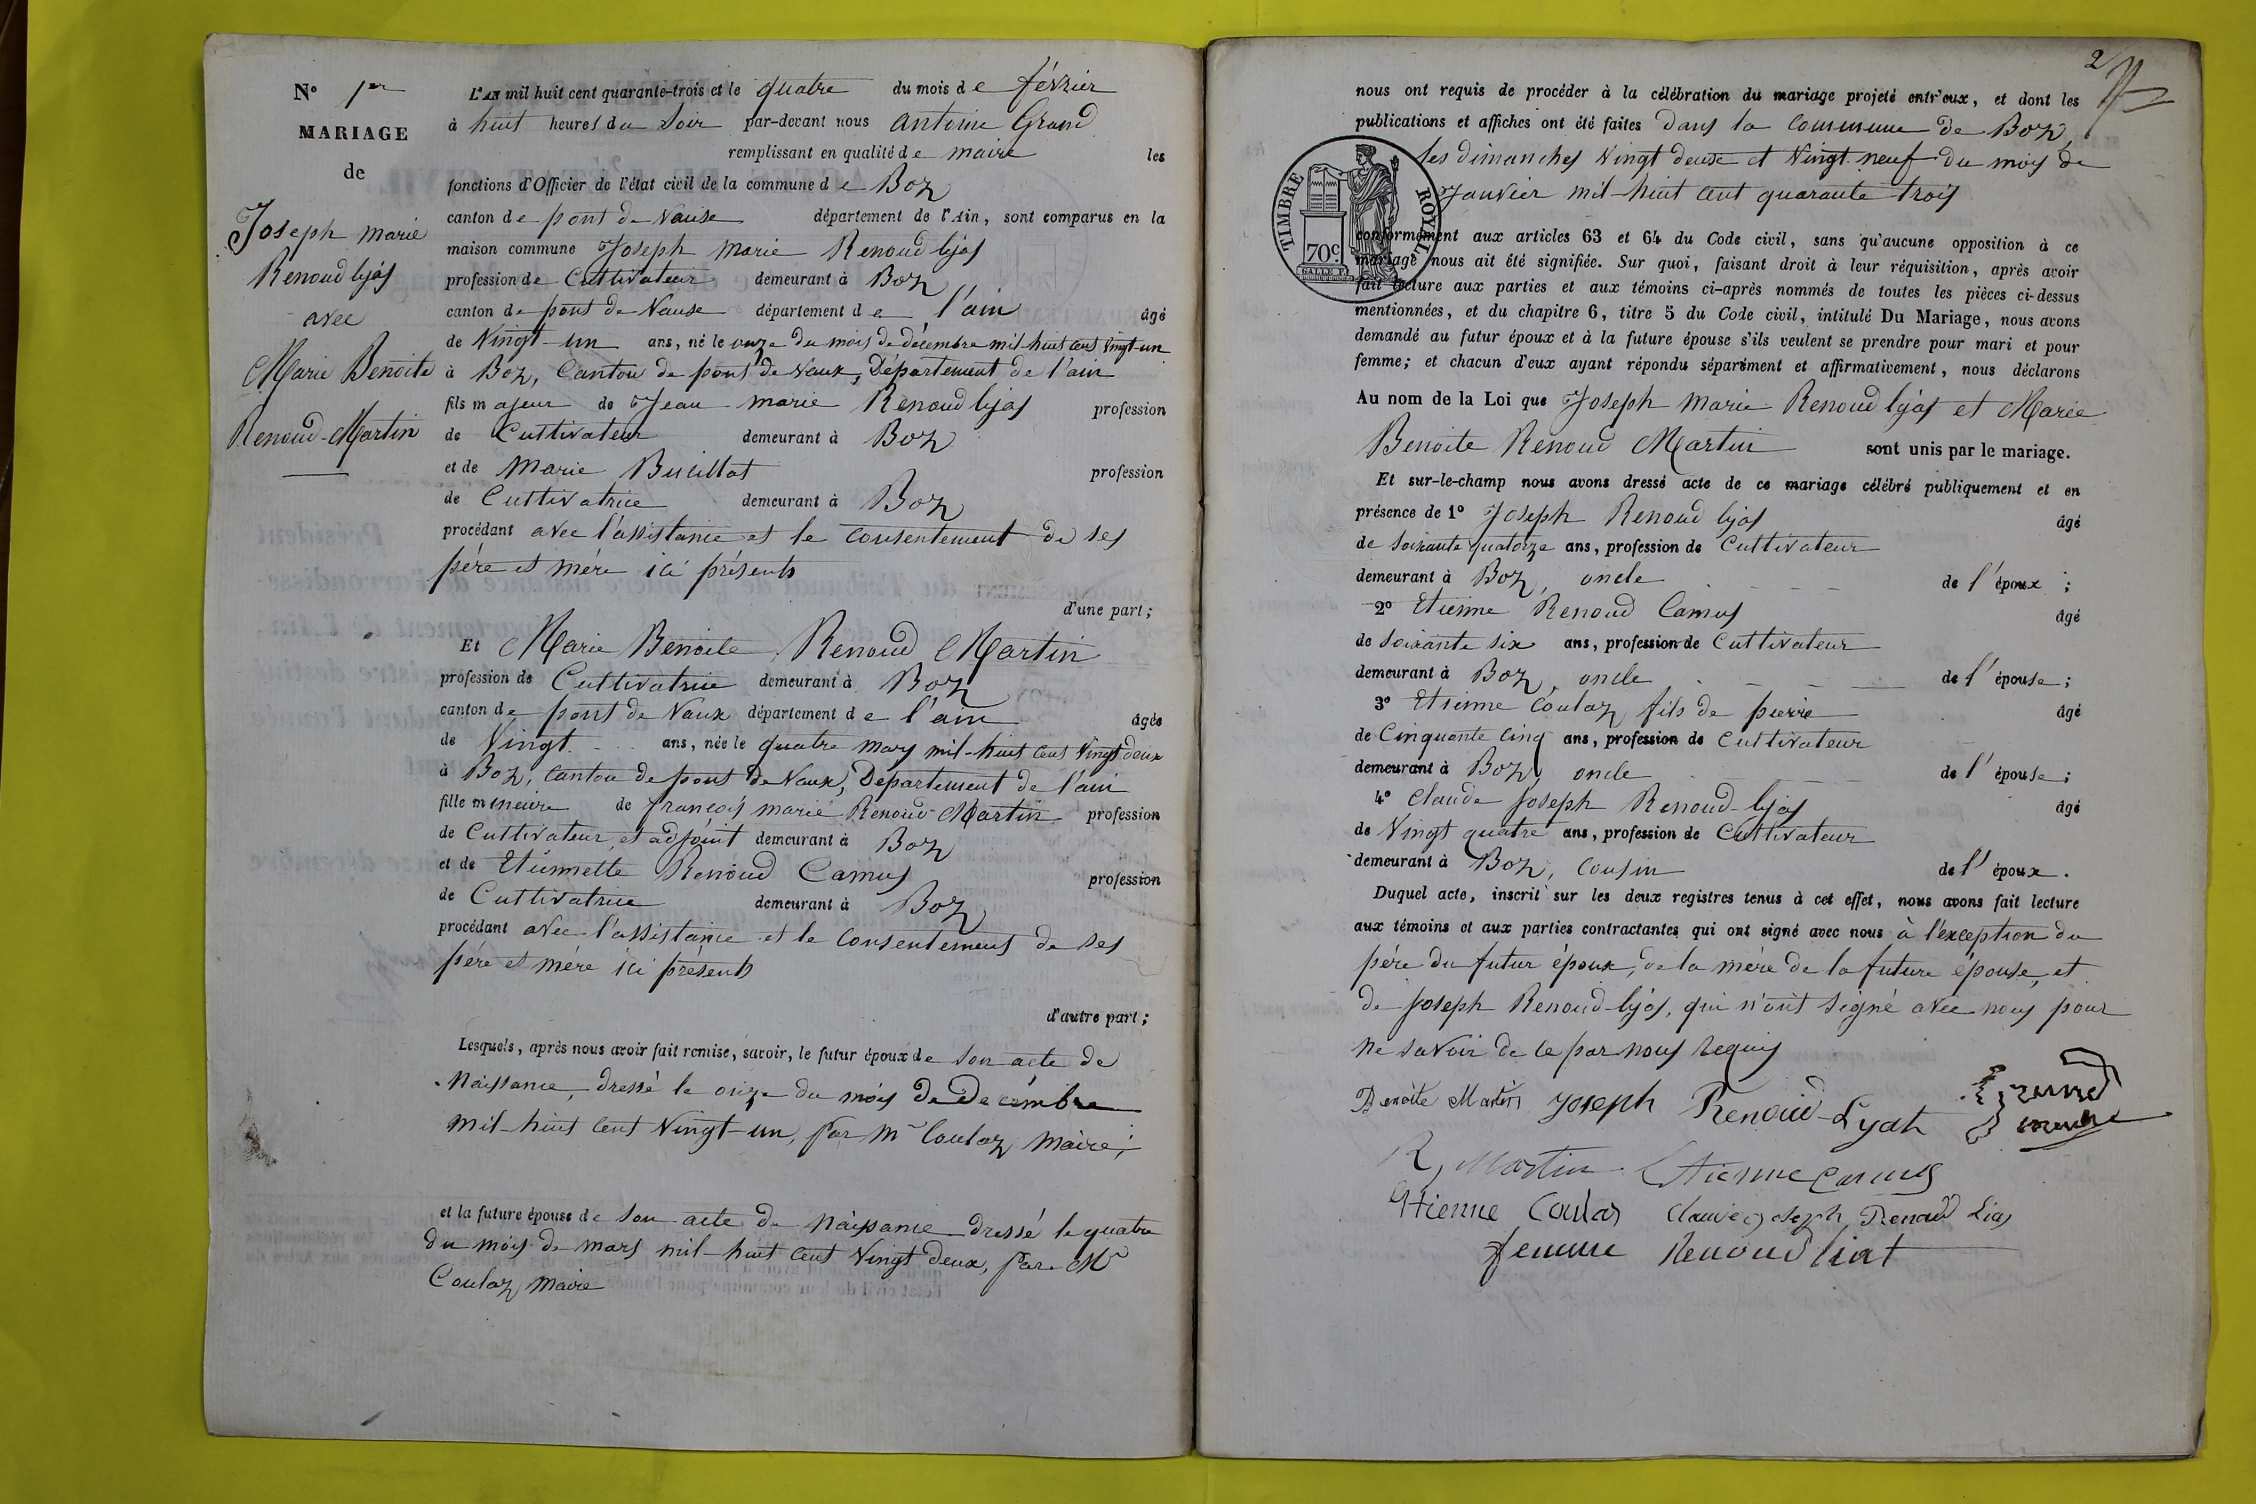 N° 1er
MARIAGE
de
Joseph marie
Renoud lyas
avec
Marie Benoite
Renoud-Martin
L'AN mil huit cent quarante-trois et le quatre du mois de février
à huit heures du Soir par-devant nous antoine Grand
remplissant en qualité de maire les
fonctions d'Officier de l'état civil de la commune de Boz
canton de pont de Vause département de l'Ain, sont comparus en la
maison commune Joseph marie Renoud lyas
profession de Cultivateur demeurant à Boz
canton de pont de Vause département de l'ain âgé
de Vingt-un ans, né le onze du mois de décembre mil huit cent vingt-un
à Boz, Canton de pont de Vaux, Département de l'ain
fils majeur de Jean marie Renoud lyas profession
de Cultivateur demeurant à Boz
et de marie profession
de Cultivatrice demeurant à Boz
procédant avec l'assistance et le consentement de ses
père et mère ici présents
d'une part;
Et Marie Benoite Renoud Martin
profession de Cultivatrice demeurant à Boz
canton de pont de Vaux département de l'ain âgée
de Vingt ans, née le quatre mars mil-huit cent Vingt deux
à Boz, canton de pont de Vaux, Département de l'ain
fille mineure de françois marie Renoud-Martin profession
de Cultivateur, et adjoint demeurant à Boz
et de Etiennette Renoud Camus profession
de Cultivatrice demeurant à Boz
procédant avec l'assistance et le consentement de ses
père et mère ici présents
d'autre part;
Lesquels, après nous avoir fait remise, savoir, le futur époux de son acte de
Naissance, dressé le onze du mois de Décembre
mil-huit cent Vingt-un, par Mr Coulaz maire;
et la future épouse de son acte de Naissance dressé le quatre
du mois de mars mil-huit cent Vingt deux, par Mr
Coulaz, maire
2
nous ont requis de procéder à la célébration du mariage projeté entr'eux, et dont les
publications et affiches ont été faites dans la commune de Boz,
les dimanches Vingt deuse et Vingt-neuf du mois de
Janvier mil-huit cent quarante trois
TIMBRE ROYAL
70c
conformément aux articles 63 et 64 du Code civil, sans qu'aucune opposition à ce
mariage nous ait été signifiée. Sur quoi, faisant droit à leur réquisition, après avoir
fait lecture aux parties et aux témoins ci-après nommés de toutes les pièces ci-dessus
mentionnées, et du chapitre 6, titre 5 du Code civil, intitulé Du Mariage, nous avons
demandé au futur époux et à la future épouse s'ils veulent se prendre pour mari et pour
femme; et chacun d'eux ayant répondu séparément et affirmativement, nous déclarons
Au nom de la Loi que Joseph marie Renoud lyas et Marie
Benoite Renoud Martin sont unis par le mariage.
Et sur-le-champ nous avons dressé acte de ce mariage célébré publiquement et en
présence de 1° Joseph Renoud lyas âgé
de soixante quatorze ans, profession de Cultivateur
demeurant à Boz, oncle de l'époux;
2° Etienne Renoud Camus âgé
de soixante six ans, profession de Cultivateur
demeurant à Boz, oncle de l'épouse;
3° Etienne Coulaz, fils de pierre âgé
de Cinquante cinq ans, profession de Cultivateur
demeurant à Boz, oncle de l'épouse;
4° Claude Joseph Renoud-lyas âgé
de Vingt quatre ans, profession de Cultivateur
demeurant à Boz, cousin de l'époux.
Duquel acte, inscrit sur les deux registres tenus à cet effet, nous avons fait lecture
aux témoins et aux parties contractantes qui ont signé avec nous à l'exception du
père du futur époux, de la mère de la future épouse, et
de Joseph Renoud-lyas, qui n'ont signé avec nous pour
ne savoir de ce par nous requis
Benoite Martin Joseph Renoud-Lyat Grand
maire
R, Martin Etienne Camus
Etienne Coulas Claude joseph Renoud Lias
femme Renoud liat